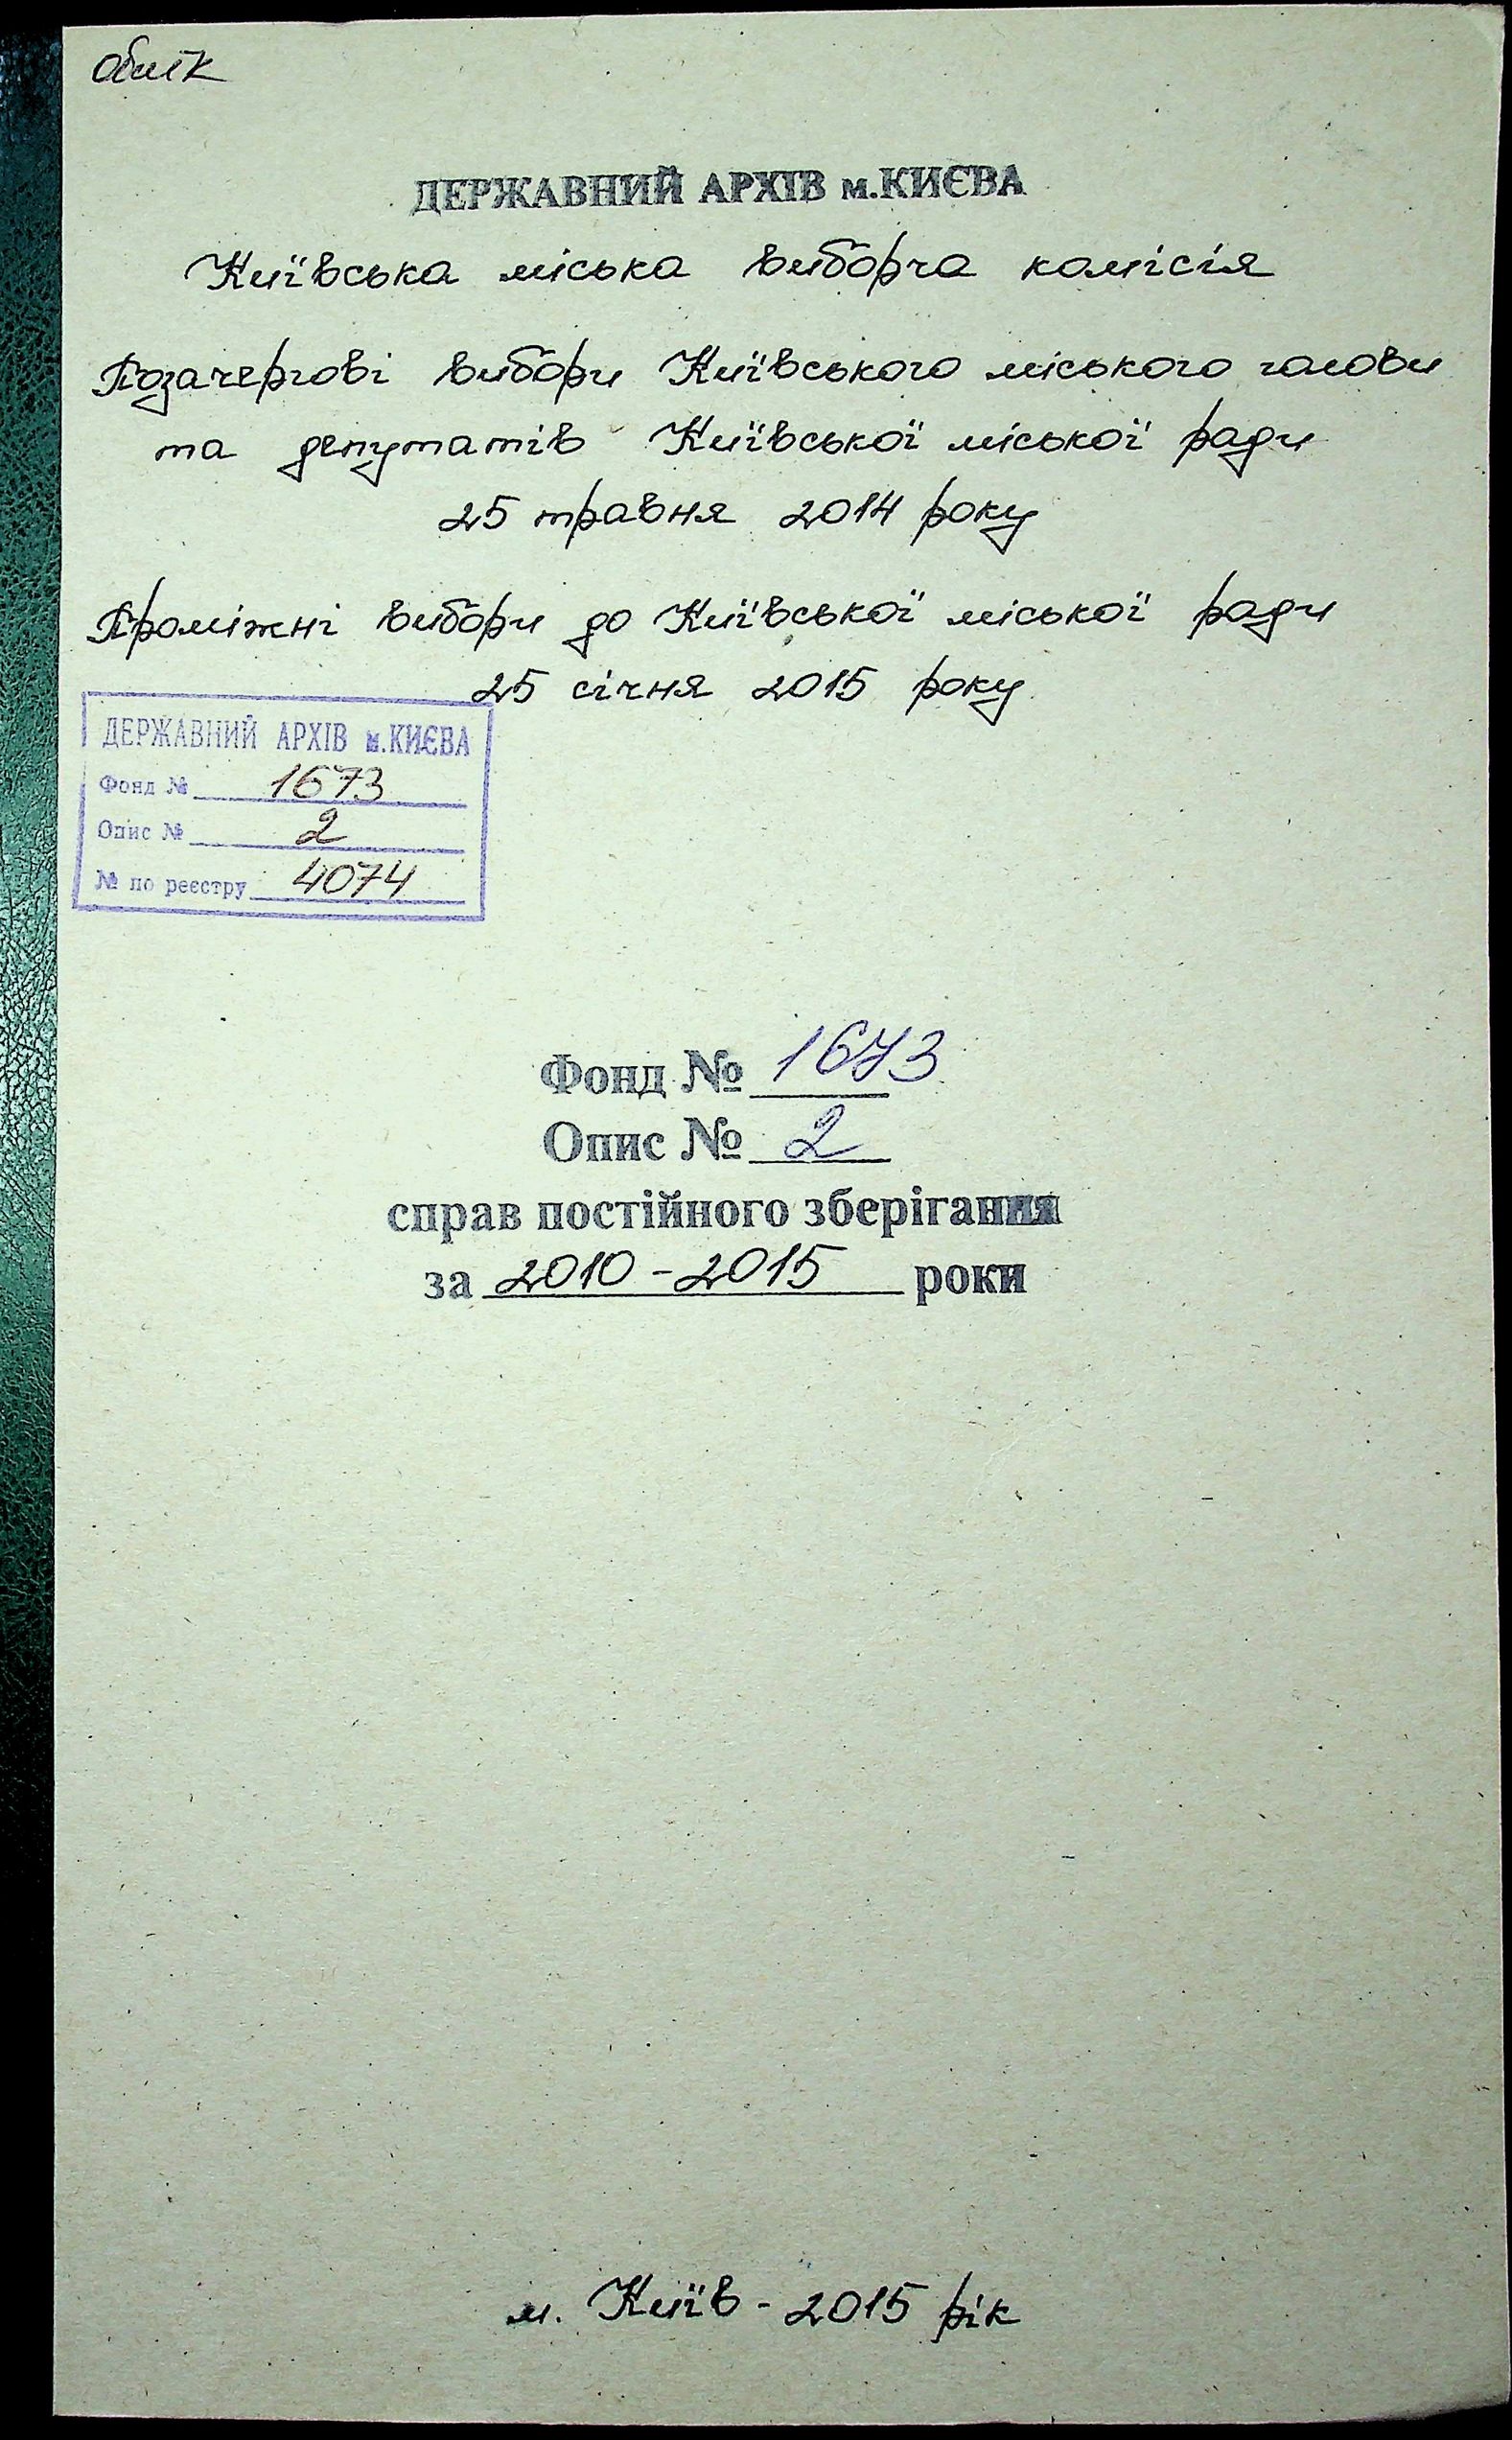 облік
ДЕРЖАВНИЙ АРХІВ м.КИЄВА
Київська міська виборча комісія
Позачергові вибори Київського міського голови
та депутатів Київської міської ради
25 травня 2014 року
Проміжні вибори до Київської міської ради
25 січня 2015 року
ДЕРЖАВНИЙ АРХІВ м.КИЄВА
Фонд № 1673
Опис № 2
№ по реєстру 4074
Фонд № 1673
Опис № 2
справ постійного зберігання
за 2010-2015 роки
м. Київ - 2015 рік